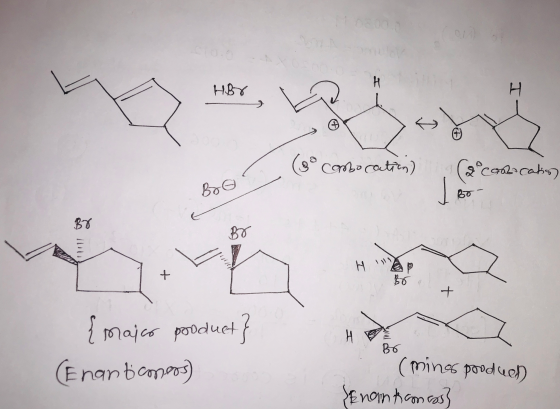 HBr
H
H
⊕
↔
⊕
(3° carbocation)
(2° carbocation)
Br⊖
Br⁻
Br
Br
+
H
Br
+
{major product}
H
Br
(Enantiomers)
(minor product)
{Enantiomers}